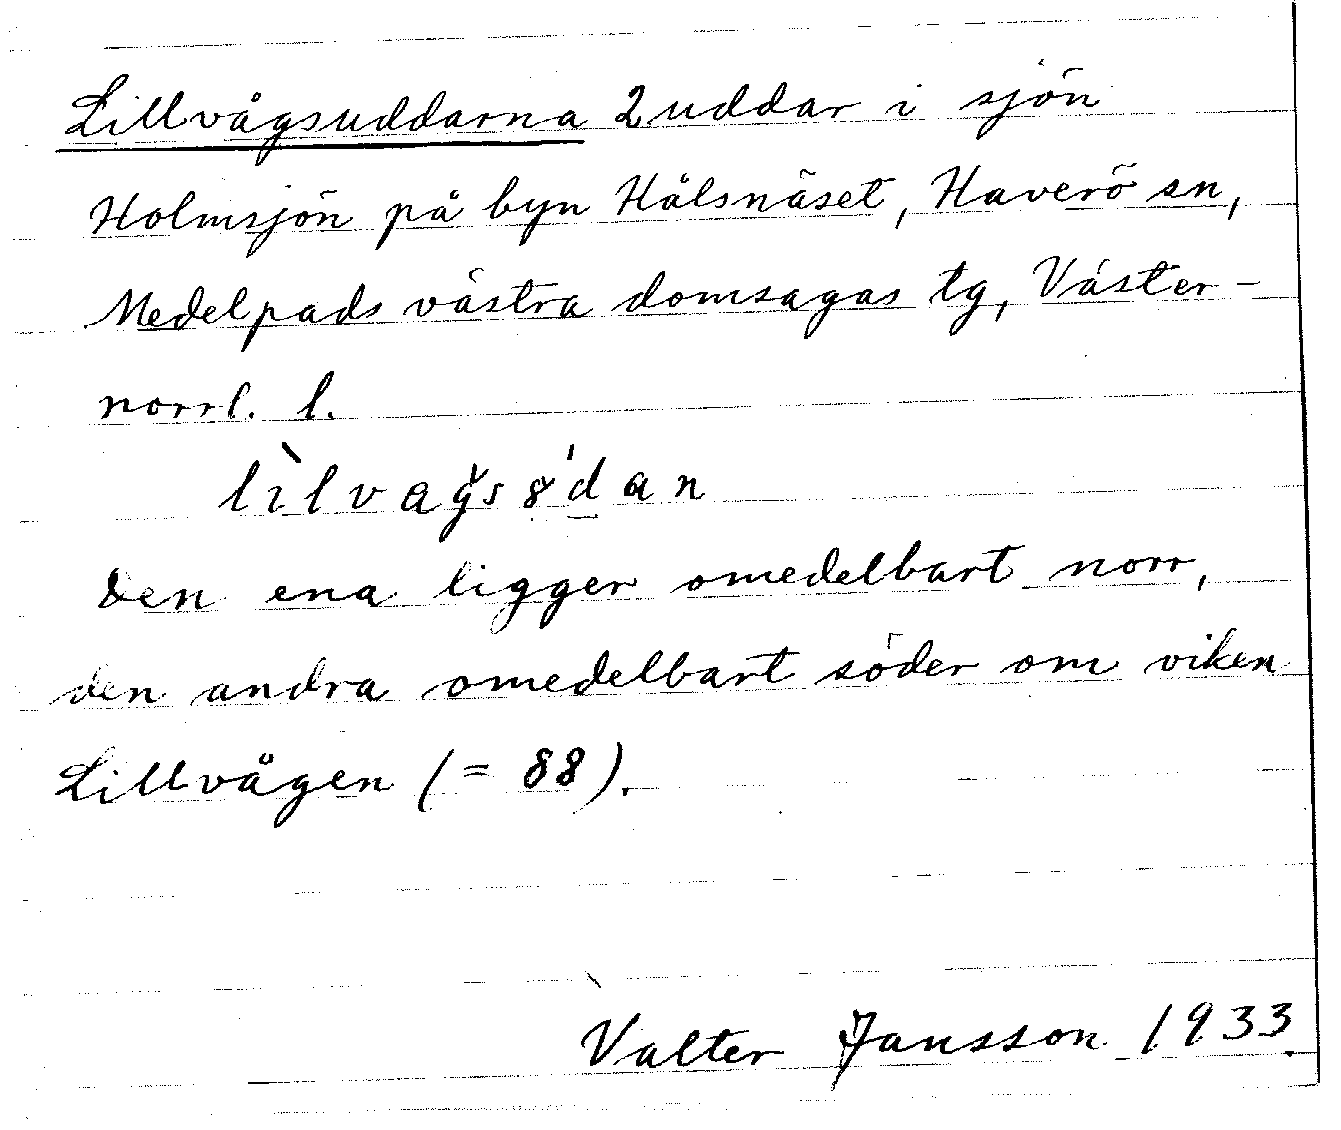 Lillvågsuddarna 2 uddar i sjön
Holmsjön på byn Hålsnäset, Haverö sn,
Medelpads västra domsagas tg, Väster-
norrl. l.
den ena ligger omedelbart norr,
den andra omedelbart söder om viken
Lillvågen (= 88).
Valter Jansson 1933.